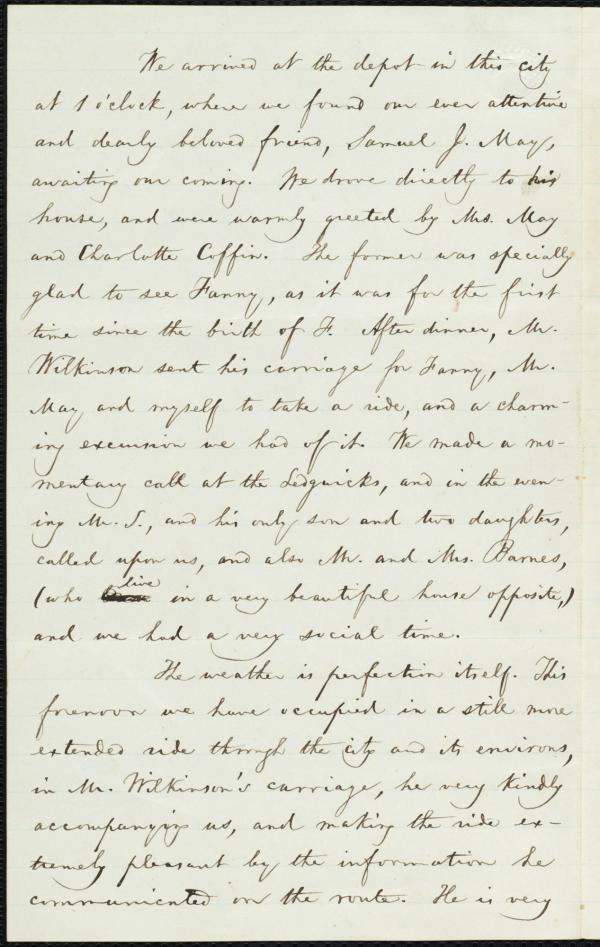 We arrived at the depot in this city
at 1 o'clock, where we found our ever attentive
and dearly beloved friend, Samuel J. May,
awaiting our coming. We drove directly to his
house, and were warmly greeted by Mrs. May
and Charlotte Coffin. The former was specially
glad to see Fanny, as it was for the first
time since the birth of F. After dinner, Mr.
Wilkinson sent his carriage for Fanny, Mr.
May and myself to take a ride, and a charm-
ing excursion we had of it. We made a mo-
mentary call at the Sedgwicks, and in the even-
ing Mr. S., and his only son and two daughters,
called upon us, and also Mr. and Mrs. Barnes,
(who live in a very beautiful house opposite,)
and we had a very social time.
The weather is perfection itself. This
forenoon we have occupied in a still more
extended ride through the city and its environs,
in Mr. Wilkinson's carriage, he very kindly
accompanying us, and making the ride ex-
tremely pleasant by the information he
communicated on the route. He is very